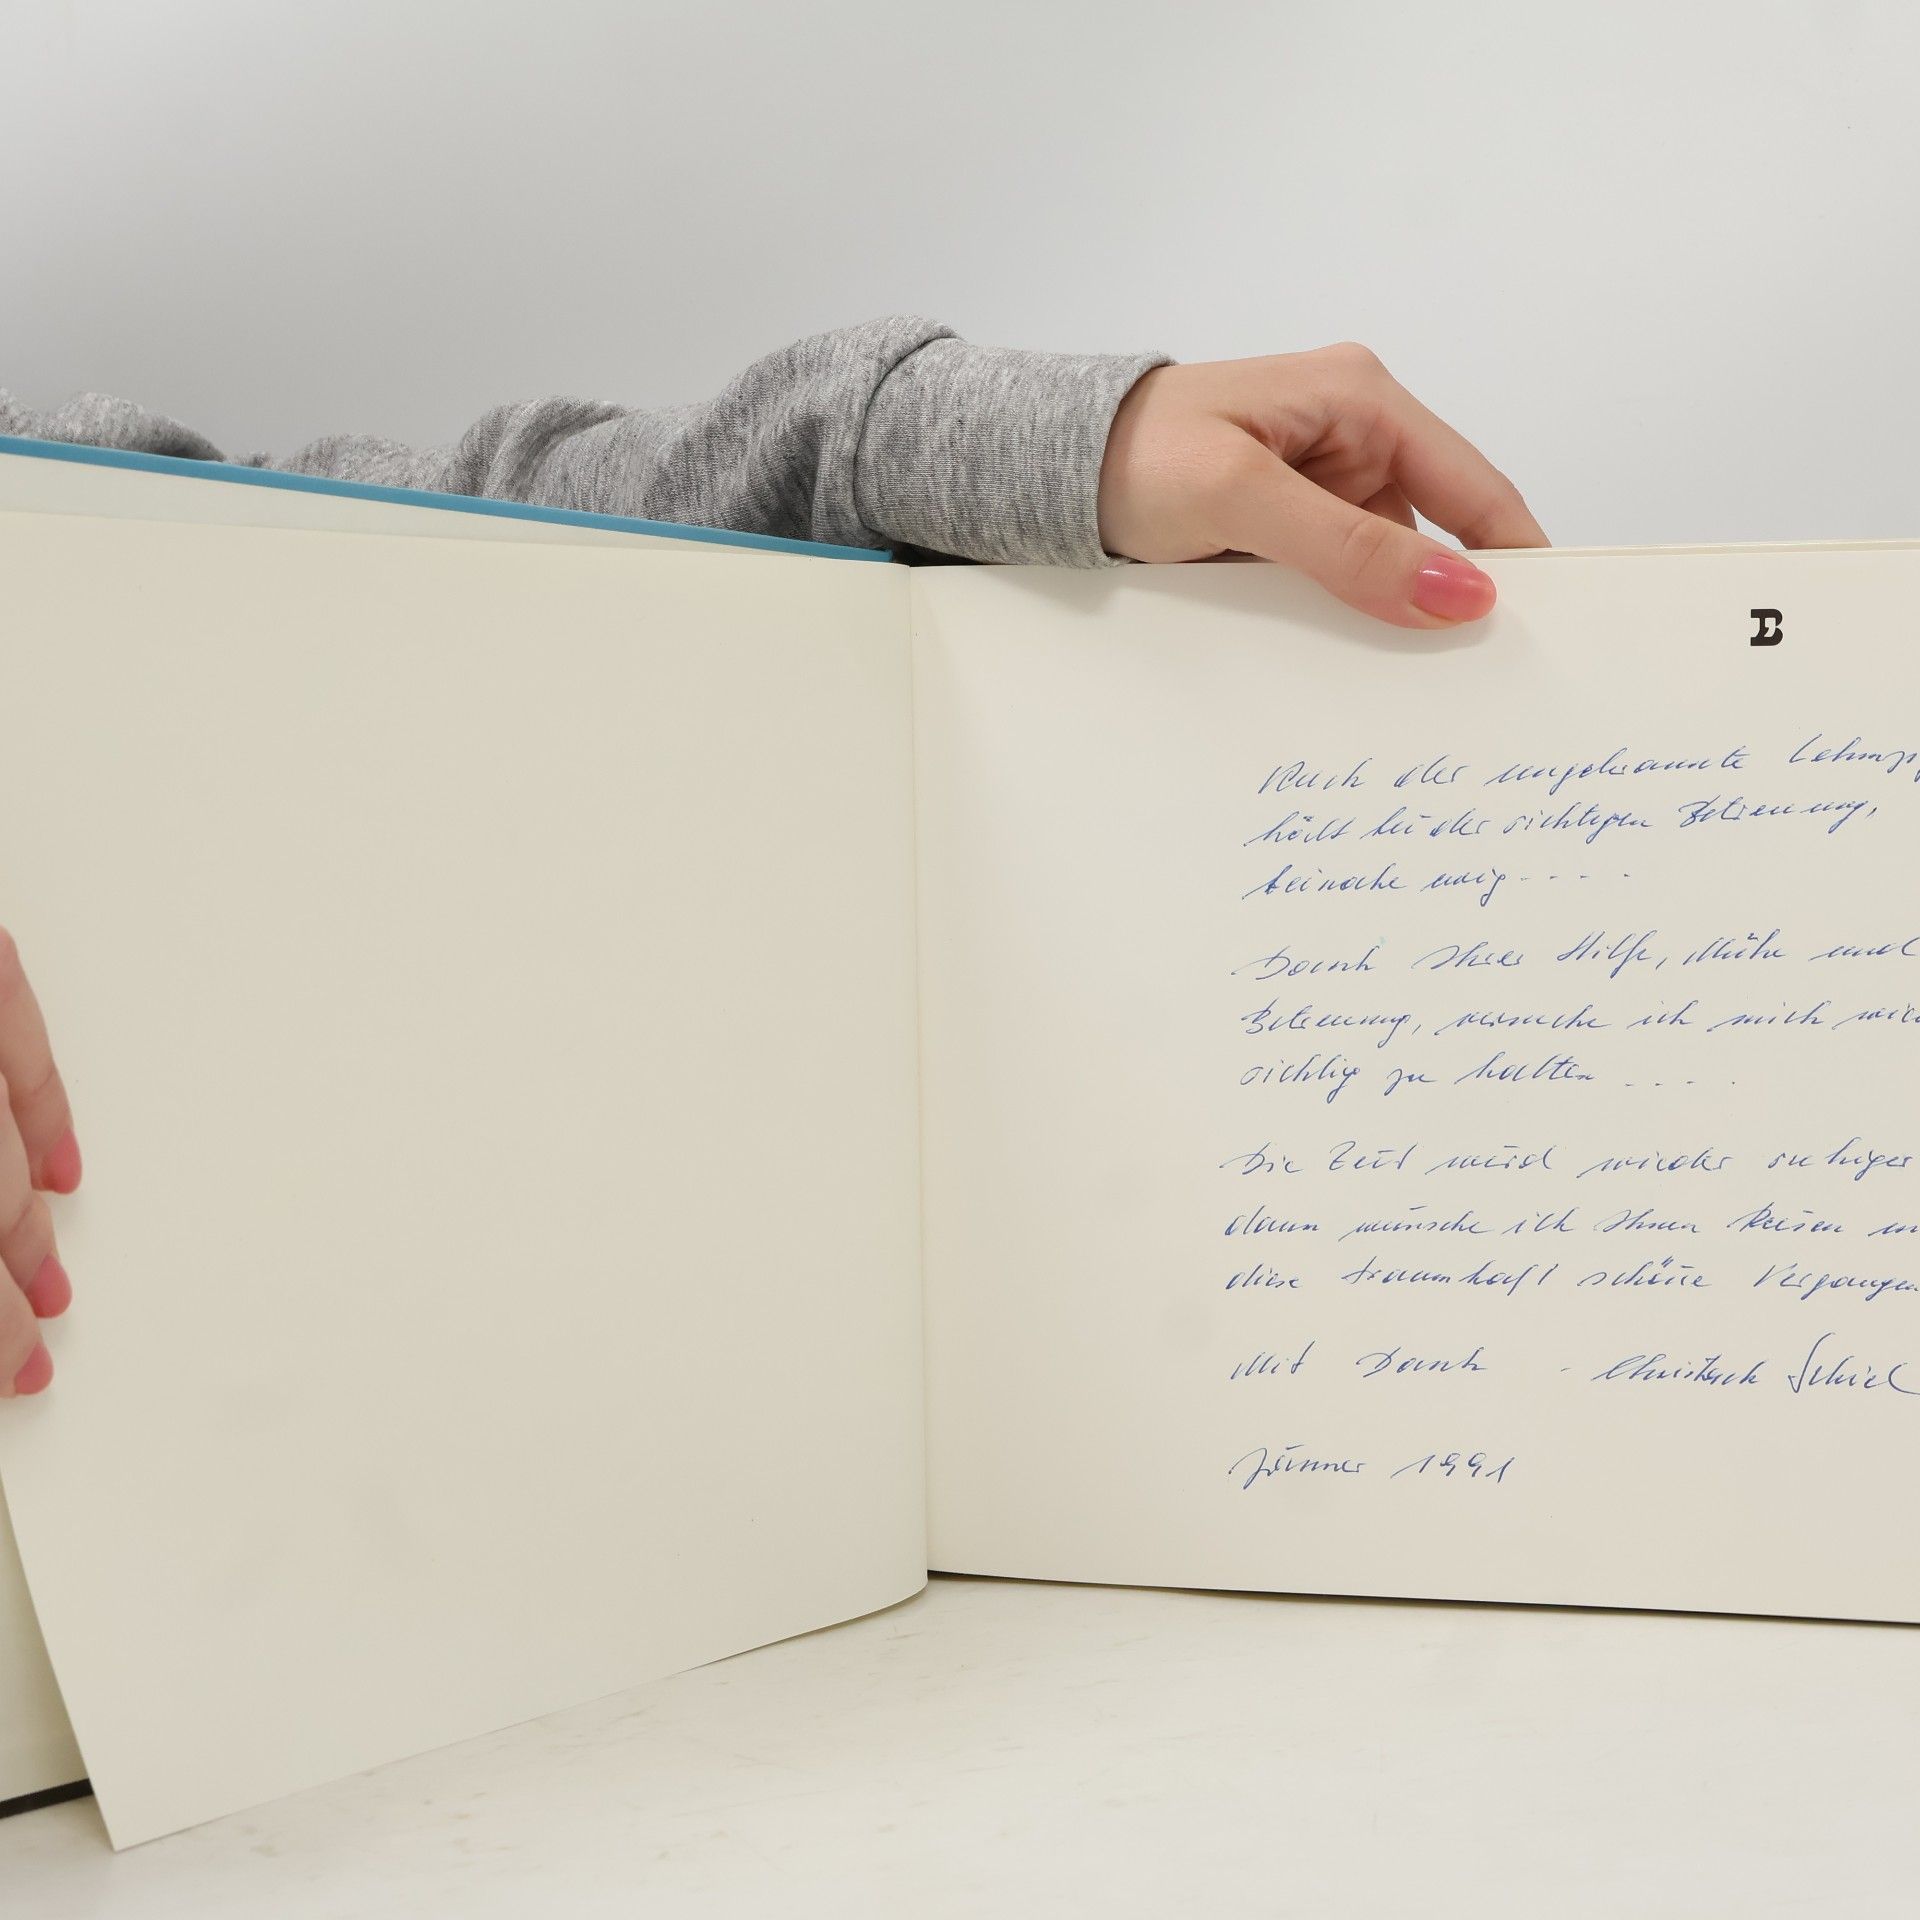 B
Auch der ungebrannte Lehmzi
hält bei der richtigen Betreuung,
beinahe ewig - - - -
Dank Ihrer Hilfe, Mühe und
Betreuung, versuche ich mich
richtig zu halten - - - -
Die Zeit wird wieder ruhiger
dann wünsche ich Ihnen Reisen
diese traumhaft schöne Vergangen
Mit Dank - Schiel
Jänner 1991